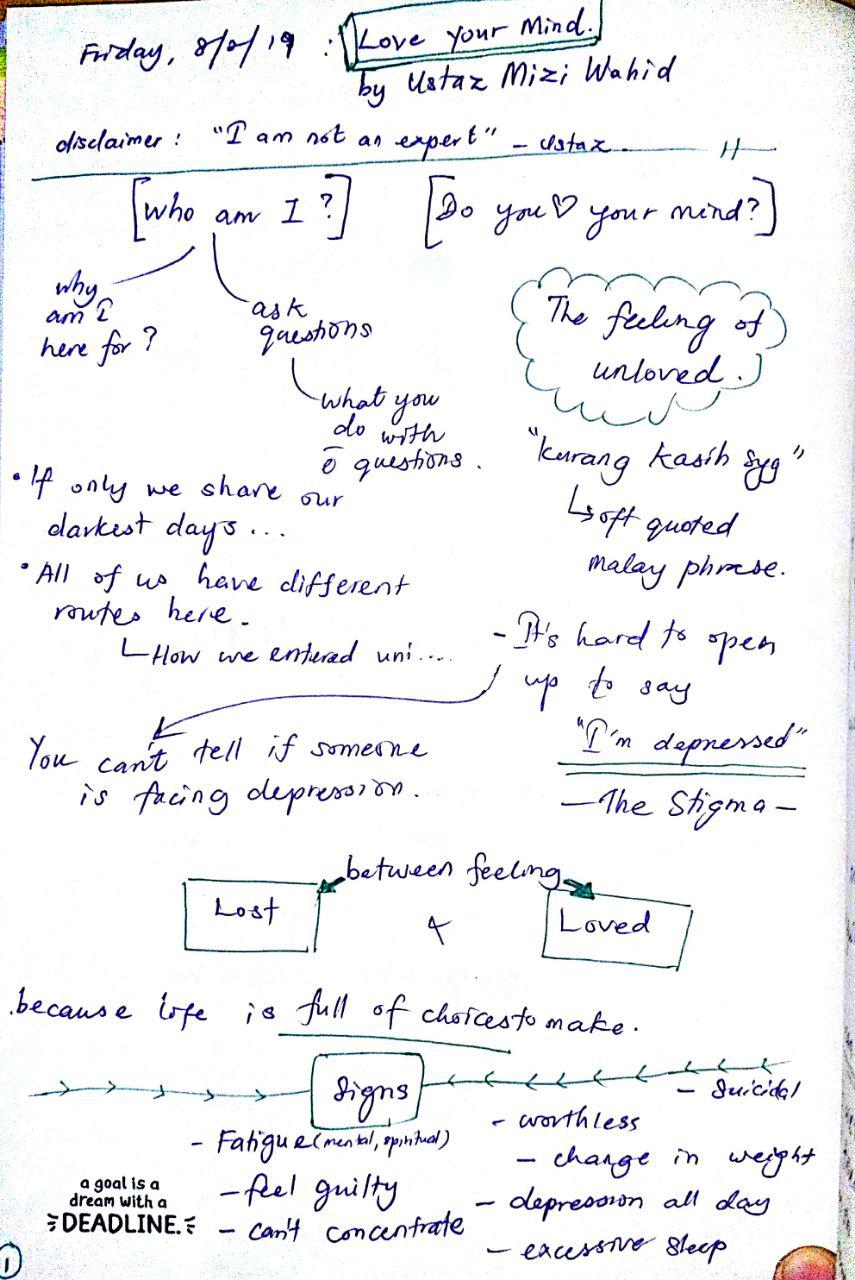 Friday, 8/2/19 : Love Your Mind.
by Ustaz Mizi Wahid
disclaimer : "I am not an expert" - Ustaz.
[Who am I ?]
[Do you ♡ your mind?]
why
am I
here for ?
ask
questions
what you
do with
ō questions.
The feeling of
unloved.
"kurang kasih syg"
↳ oft quoted
malay phrase.
• If only we share our
darkest days...
• All of us have different
routes here.
└ How we entered uni....
- It's hard to open
up to say
"I'm depressed"
- The Stigma -
You can't tell if someone
is facing depression.
between feeling
Lost
&
Loved
.because life is full of choices to make.
Signs
- Fatigue (mental, spiritual)
- feel guilty
- can't concentrate
- Suicidal
- worthless
- change in weight
- depression all day
- excessive sleep
a goal is a
dream with a
DEADLINE.
1